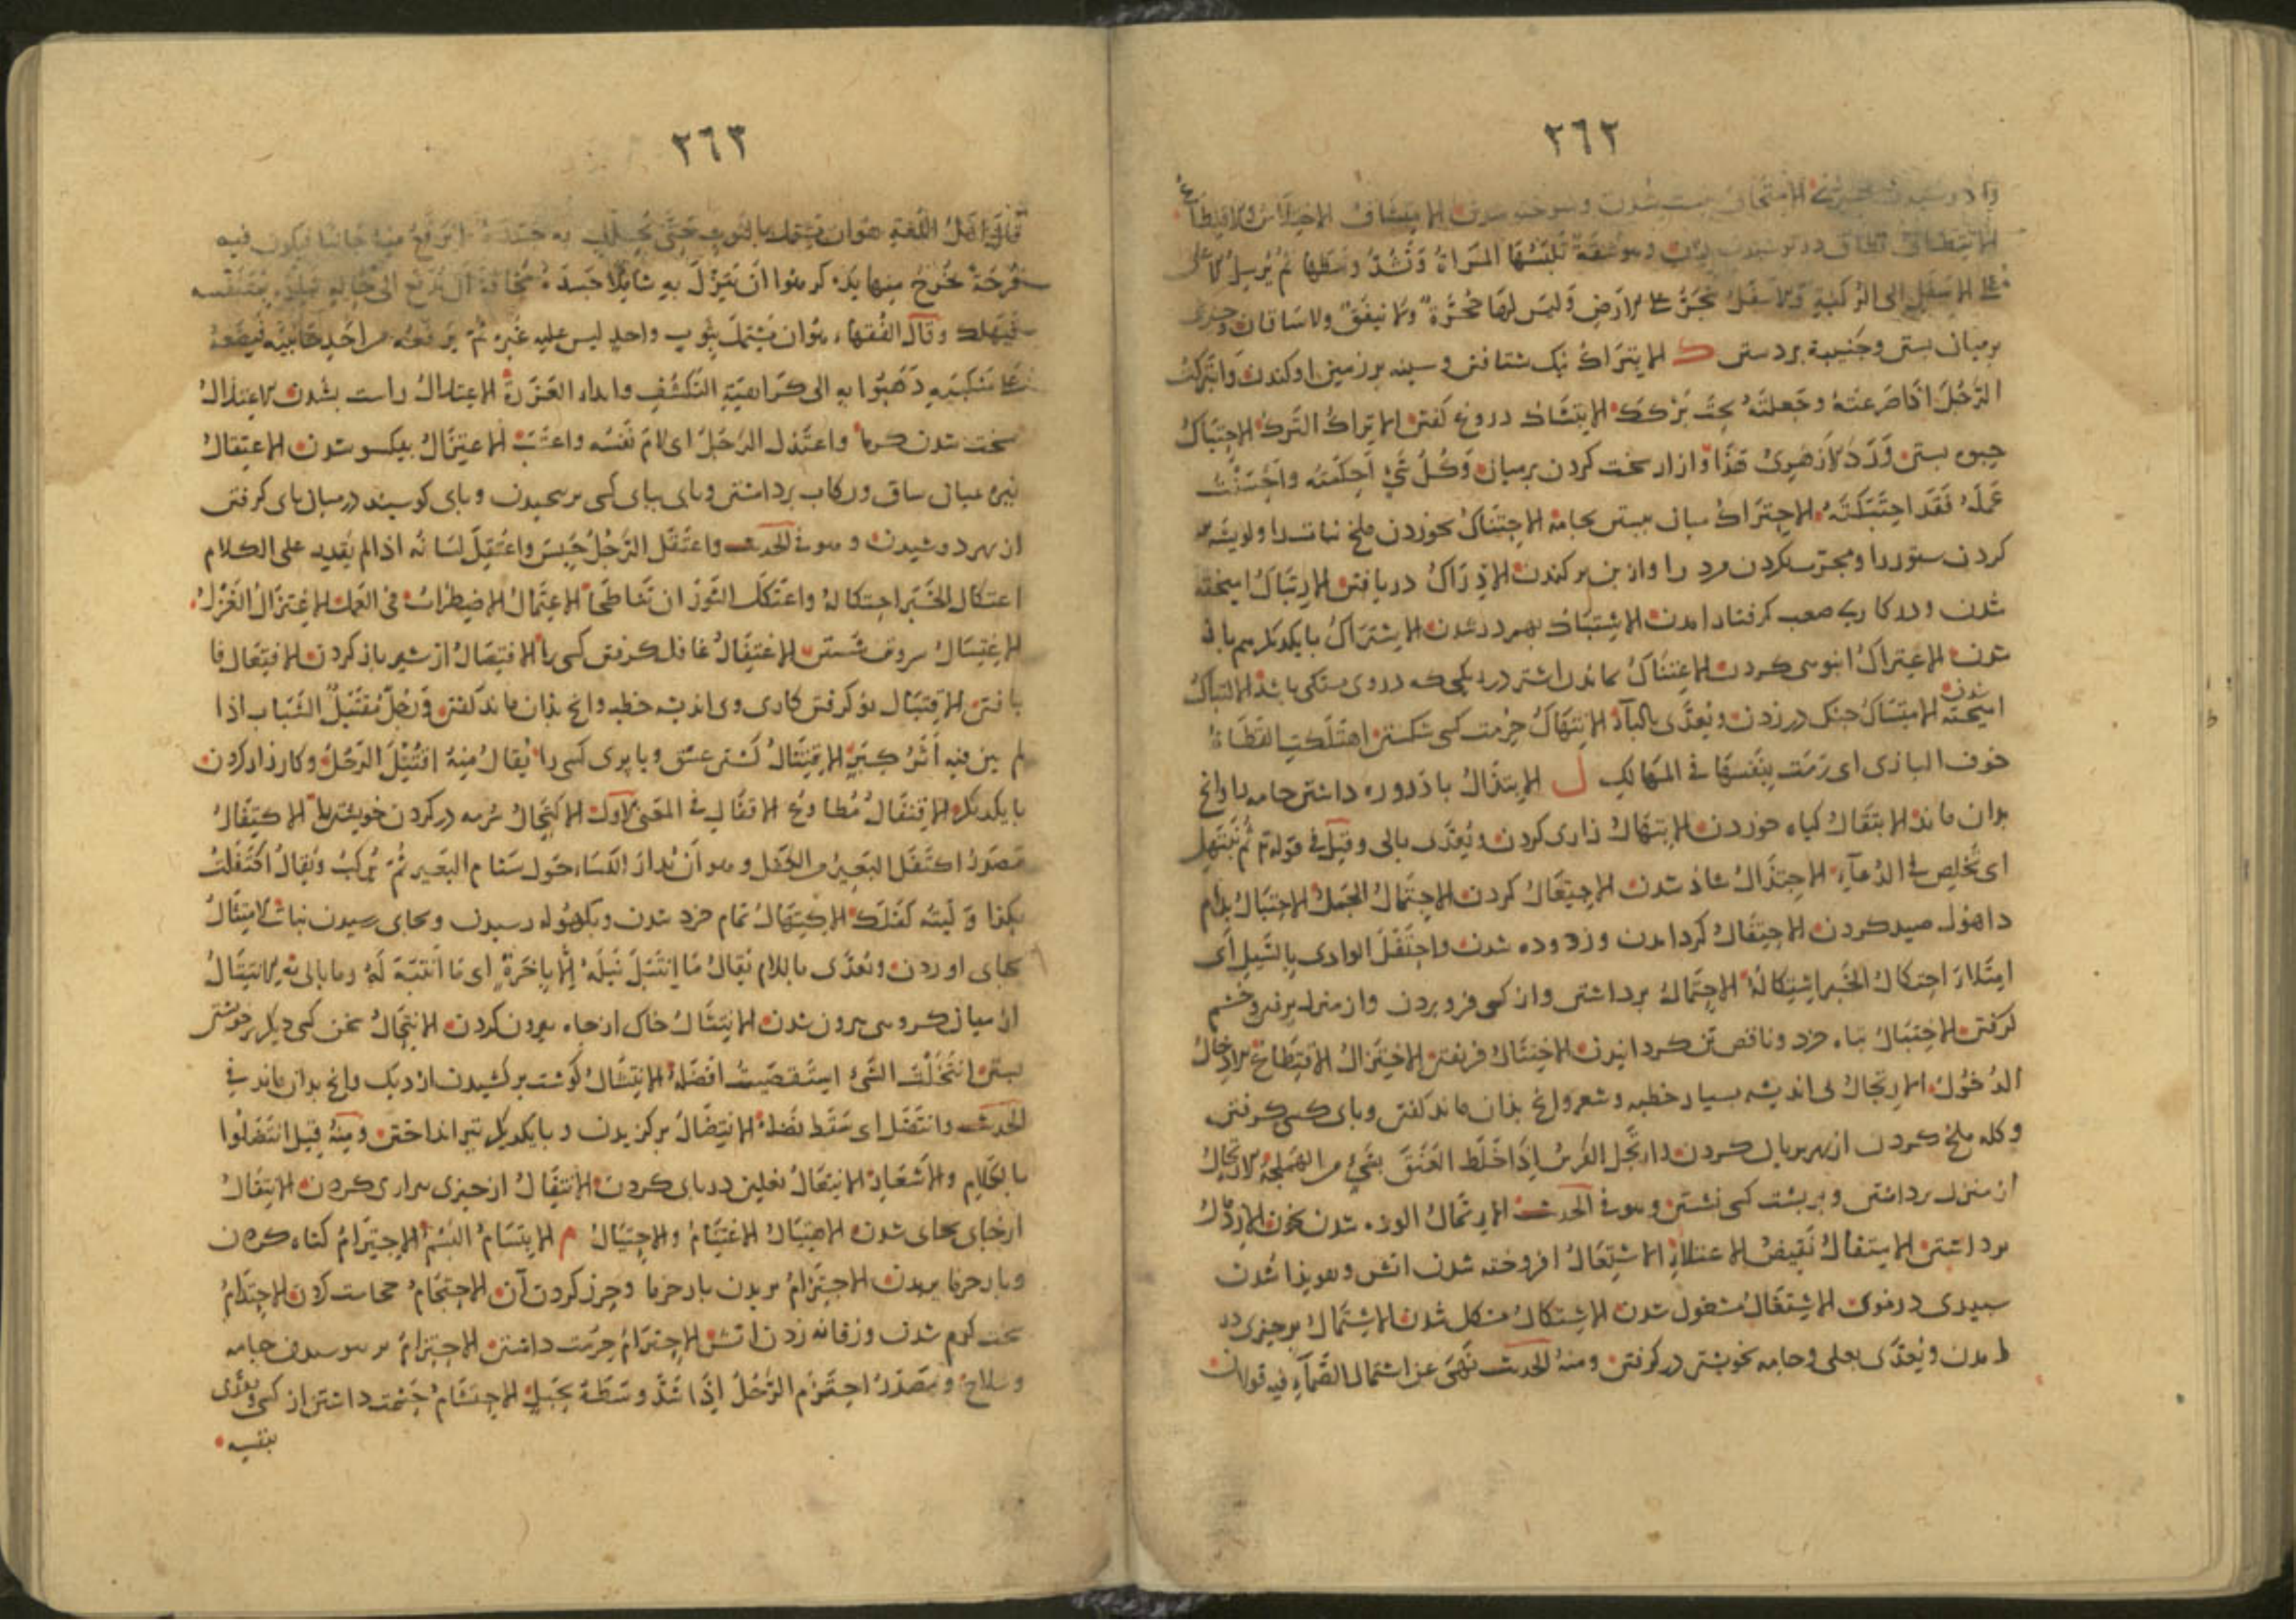 ٢٦٢
الامتحاق شدن وسوخته شدن الانتشاف الاختلاس
الانتطاق نطاق در پوشیدن وهو شقة تلبسها المراة وتشد وسطها ثم ترسل الاعلى
على الاسفل الى الركبة والاسفل ينجر على الارض وليس لها حجزة ولا نيفق ولا ساقان وچیزی
بر میان بستن وجنیبة بر دستن ك الابتراك نیک شتافتن وسینه بر زمین اوکندن وابتركت
الرجل اذا صرعته وجعلته تحت بركك الابتشاك دروغ گفتن الاتراك الترك الاحتباك
حبوه بستن وردّ الازهری هذا وازار سخت کردن بر میان وكل شیء احكمته واحسنت
عمله فقد احتبكته الاحتزاك میان ببستن بجامه الاحتناك بخوردن ملخ نبات را ولویشه
کردن ستور را ومجرب کردن مرد را واز بن بر کندن الادّراك دریافتن الارتباك امیخته
شدن ودر کاری صعب گرفتار امدن الاشتباك بهم در شدن الاشتراك با یکدیگر هم باز
شدن الاعتراك انبوهی کردن الاعتناك بماندن اشتر در ریگی که در وی مشکی باشد الالتباك
امیخته شدن الامتساك چنگ در زدن ویعدّى بالباء الانتهاك حرمت کسی شکستن اهتلكت القطاة
خوف البازی ای رمت بنفسها فی المهالك ل الابتذال باد روزه داشتن جامه را وانچ
بدان ماند الابتقال گیاه خوردن الابتهال زاری کردن ویعدّى بالى وقیل فی قوله تع ثم نبتهل
ای نخلص فی الدعاء الاجتذال شاد شدن الاجتعال کردن الاجتمال الجمل الاحتبال بدام
داهول صید کردن الاحتفال گرد امدن وزدوده شدن واحتفل الوادی بالسیل ای
امتلا احتكال الخبر اشتكاله الاحتمال برداشتن واز کسی فرو بردن واز منزل برفتن وخشم
گرفتن الاختبال تباه خرد وناقص تن گردانیدن الاختتال فریفتن الاختزال الاقتطاع الادّخال
الدخول الارتجال بی اندیشه بسیار خطبه وشعر وانچ بدان ماند گفتن وپای کسی گرفتن
وکله ملخ کردن از بهر بریان کردن وارتجل الفرس اذا خلط العنق بشیء من الهملجة الارتحال
از منزل برداشتن وبر پشت کسی نشستن وهو فی الحدیث الارتمال الوده شدن بخون الازدمال
برداشتن الاستفال نقیض الاعتلاء الاشتعال افروخته شدن اتش وهویدا شدن
سپیدی در موی الاشتغال مشغول شدن الاشتكال مشکل شدن الاشتمال بر چیزی در
امدن ویعدّى بعلى وجامه بخویشتن در گرفتن ومنه الحدیث نهى عن اشتمال الصماء فیه قولان
٢٦٣
قال اهل اللغة هو ان یشتمل بالثوب حتى یجلل به جسده لا یرفع منه جانبا فیكون فیه
فرجة تخرج منها یده كرهوا ان یتزل به شاملا جسده مخافة ان یدفع الى حالة تسد متنفسه
فیهلك وقال الفقهاء هو ان یشتمل بثوب واحد لیس علیه غیره ثم یرفعه من احد جانبیه فیضعه
على منكبیه ذهبوا به الى كراهیة التكشف وابداء العورة الاعتدال راست بشدن الاعتذال
سخت شدن گرما واعتذل الرجل ای لام نفسه واعتب الاعتزال بیکسو شدن الاعتقال
نیزه میان ساق ورکاب برداشتن وپای بپای کسی بر پیچیدن وپای گوسپند در میان پای گرفتن
از بهر دوشیدن وهو فی الحدیث واعتقل الرجل حبس واعتقل لسانه اذا لم یقدر على الكلام
اعتكال الخبر احتكاله واعتكل الثوران تناطحا الاعتمال الاضطراب فی العمل الاغتزال الغزل
الاغتسال سر وتن شستن الاغتفال غافل گرفتن کسی را الافتصال از شیر باز کردن الافتعال فرا
بافتن الاقتبال نو گرفتن کاری وبی اندیشه خطبه وانچ بدان ماند گفتن ورجل مقتبل الشباب اذا
لم یبن فیه اثر كبر الاقتتال کشتن عشق ویا پری کسی را یقال منه اقتتل الرجل وکارزار کردن
با یکدیگر الاقتفال مطاوع الاقفال فی المعنى الاول الاكتحال سرمه در کردن خویشتن را الاكتفال
مصدر اكتفل البعیر من الكفل وهو ان یدار الكساء حول سنام البعیر ثم یركب ویقال اكتفلت
بكذا ولیته كفلك الاكتهال تمام خرد شدن وبکهوله رسیدن وبجای رسیدن نبات الامتثال
بجای اوردن ویعدّى باللام یقال ما انتبل نبله الا باخرة ای ما انتبه له وما بالى به الانتتال
از میان گروهی بیرون شدن الانتثال خاک از چاه بیرون کردن الانتحال سخن کسی دیگر بر خویشتن
بستن انتخلت الشیء استقصیت افضله الانتشال گوشت بر کشیدن از دیگ وانچ بدان ماند فی
الحدیث وانتصل ای سقط نصله الانتضال بر گزیدن وبا یکدیگر تیر انداختن ومنه قیل انتضلوا
بالكلام والاشعار الانتعال نعلین در پای کردن الانتفال از چیزی بیزاری کردن الانتقال
از جای بجای شدن الاهتبال الاغتنام والاحتیال م الابتسام البسم الاجترام گناه کردن
وبار خرما بریدن الاجتزام بریدن بار خرما وحرز کردن آن الاحتجام حجامت کردن الاحتدام
سخت گرم شدن وزفانه زدن اتش الاحترام حرمت داشتن الاحتزام در پوشیدن جامه
وسلاح ومصدر احتزم الرجل اذا شد وسطه بحبل الاحتشام حشمت داشتن از کسی ویعدّى
بنفسه